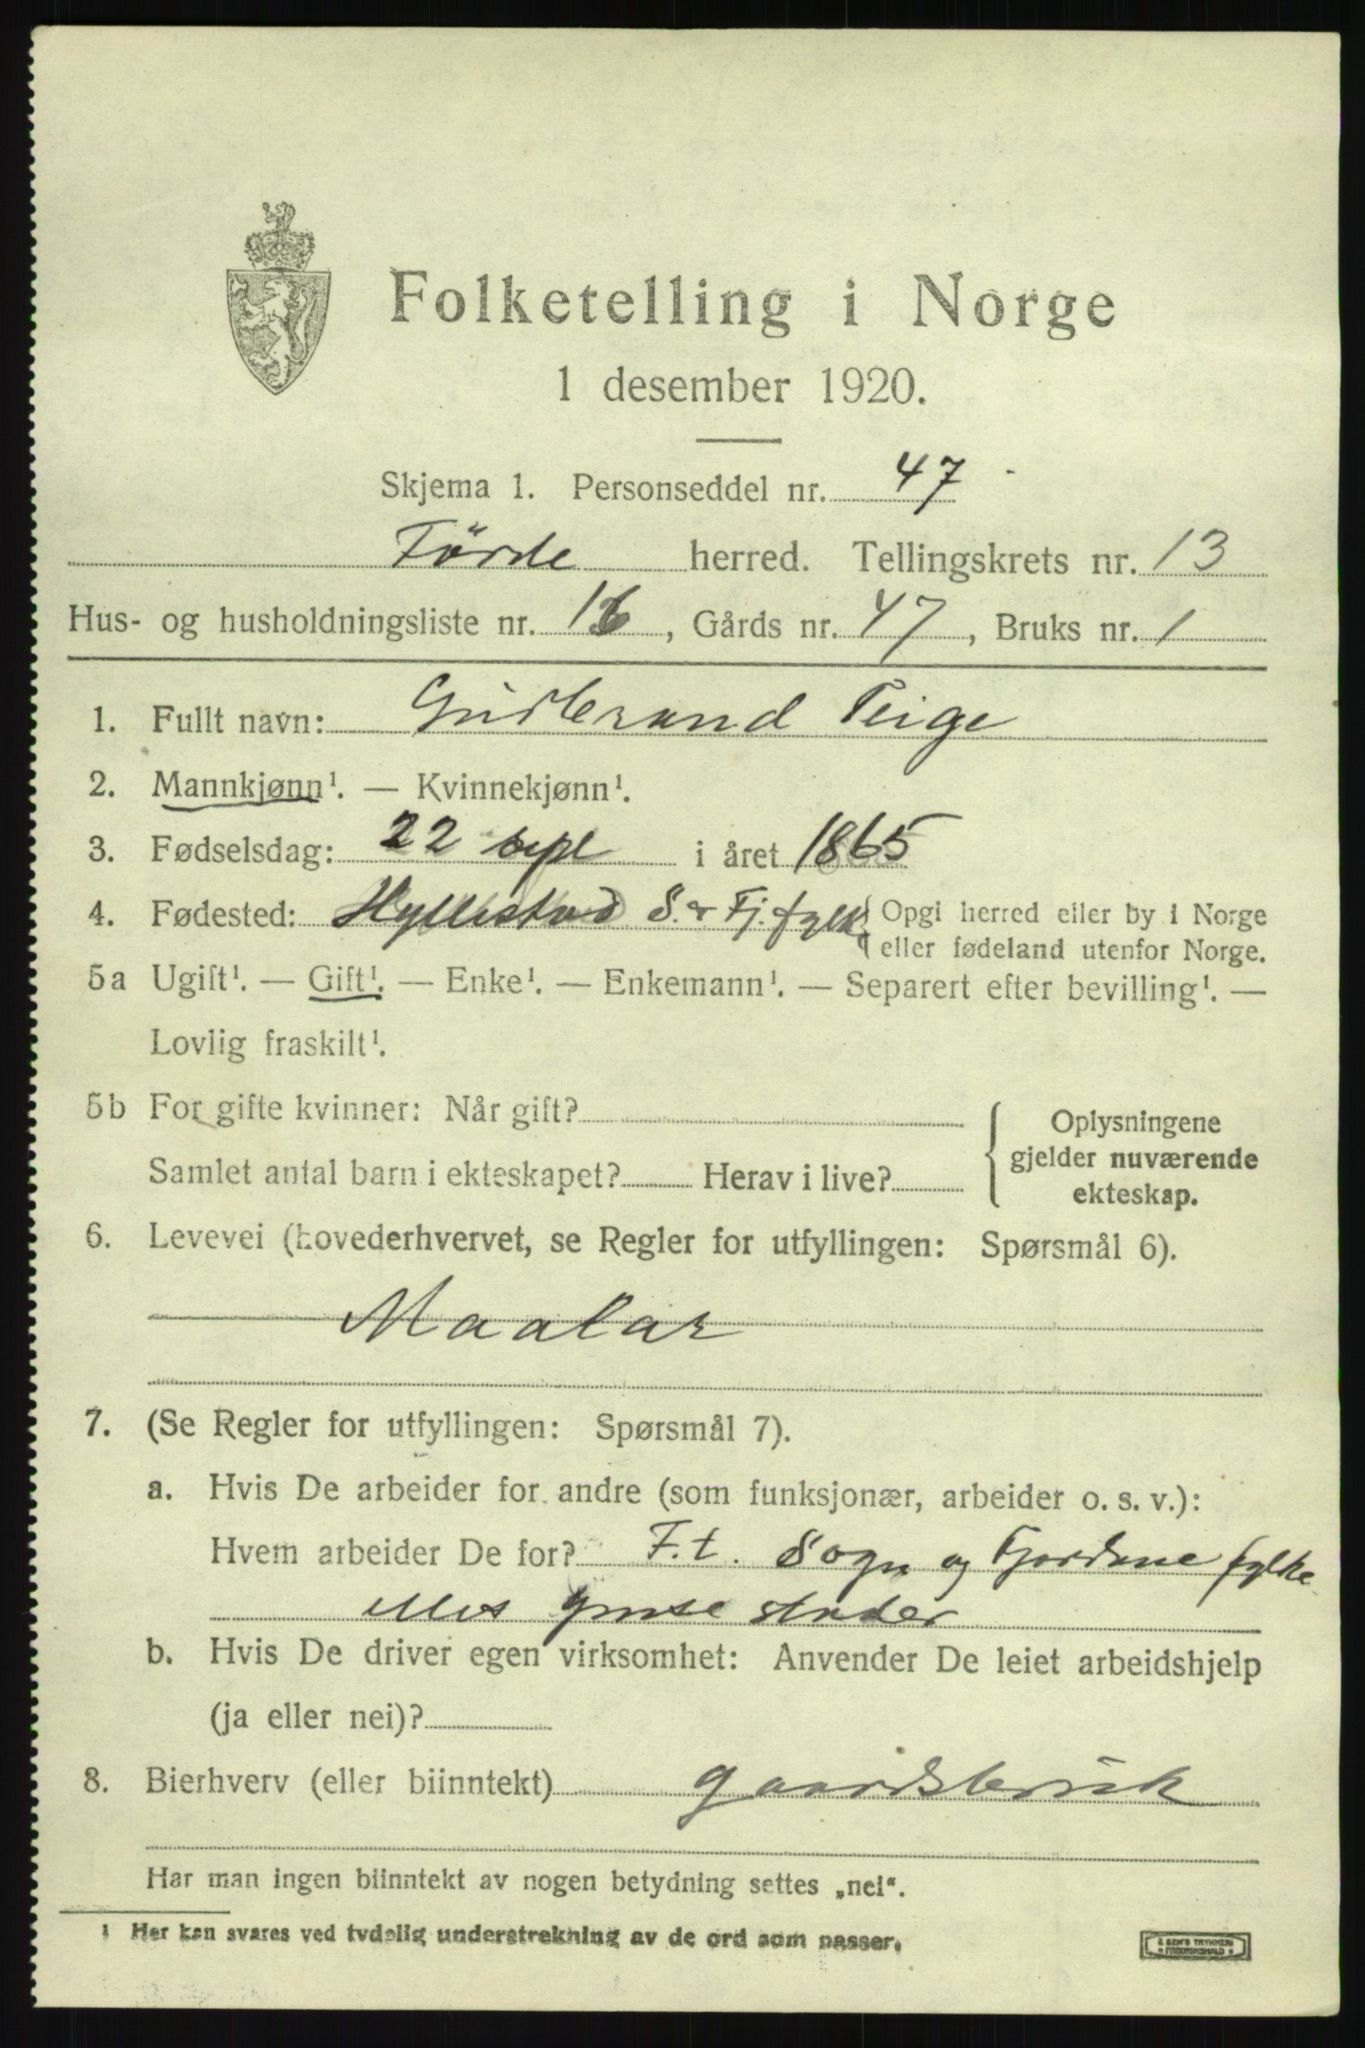 Folketelling i Norge
1 desember 1920.
Skjema 1. Personseddel nr. 47
Førde herred. Tellingskrets nr. 13
Hus- og husholdningsliste nr. 16, Gårds nr. 47, Bruks nr. 1
1. Fullt navn: Gudbrand Teige
2. Mannkjønn¹. — Kvinnekjønn¹.
3. Fødselsdag: 22 sept i året 1865
4. Fødested: Hyllestad S. & Fj. fylke { Opgi herred eller by i Norge
eller fødeland utenfor Norge.
5a Ugift¹. — Gift¹. — Enke¹. — Enkemann¹. — Separert efter bevilling¹. —
Lovlig fraskilt¹.
5b For gifte kvinner: Når gift?
Samlet antal barn i ekteskapet? Herav i live?
{ Oplysningene
gjelder nuværende
ekteskap.
6. Levevei (hovederhvervet, se Regler for utfyllingen: Spørsmål 6).
Maalar
7. (Se Regler for utfyllingen: Spørsmål 7).
a. Hvis De arbeider for andre (som funksjonær, arbeider o. s. v.):
Hvem arbeider De for? F.t. Sogn og Fjordane fylke
stader
b. Hvis De driver egen virksomhet: Anvender De leiet arbeidshjelp
(ja eller nei)?
8. Bierhverv (eller biinntekt) gaardsbruk
Har man ingen biinntekt av nogen betydning settes „nei“.
1 Her kan svares ved tydelig understrekning av de ord som passer.